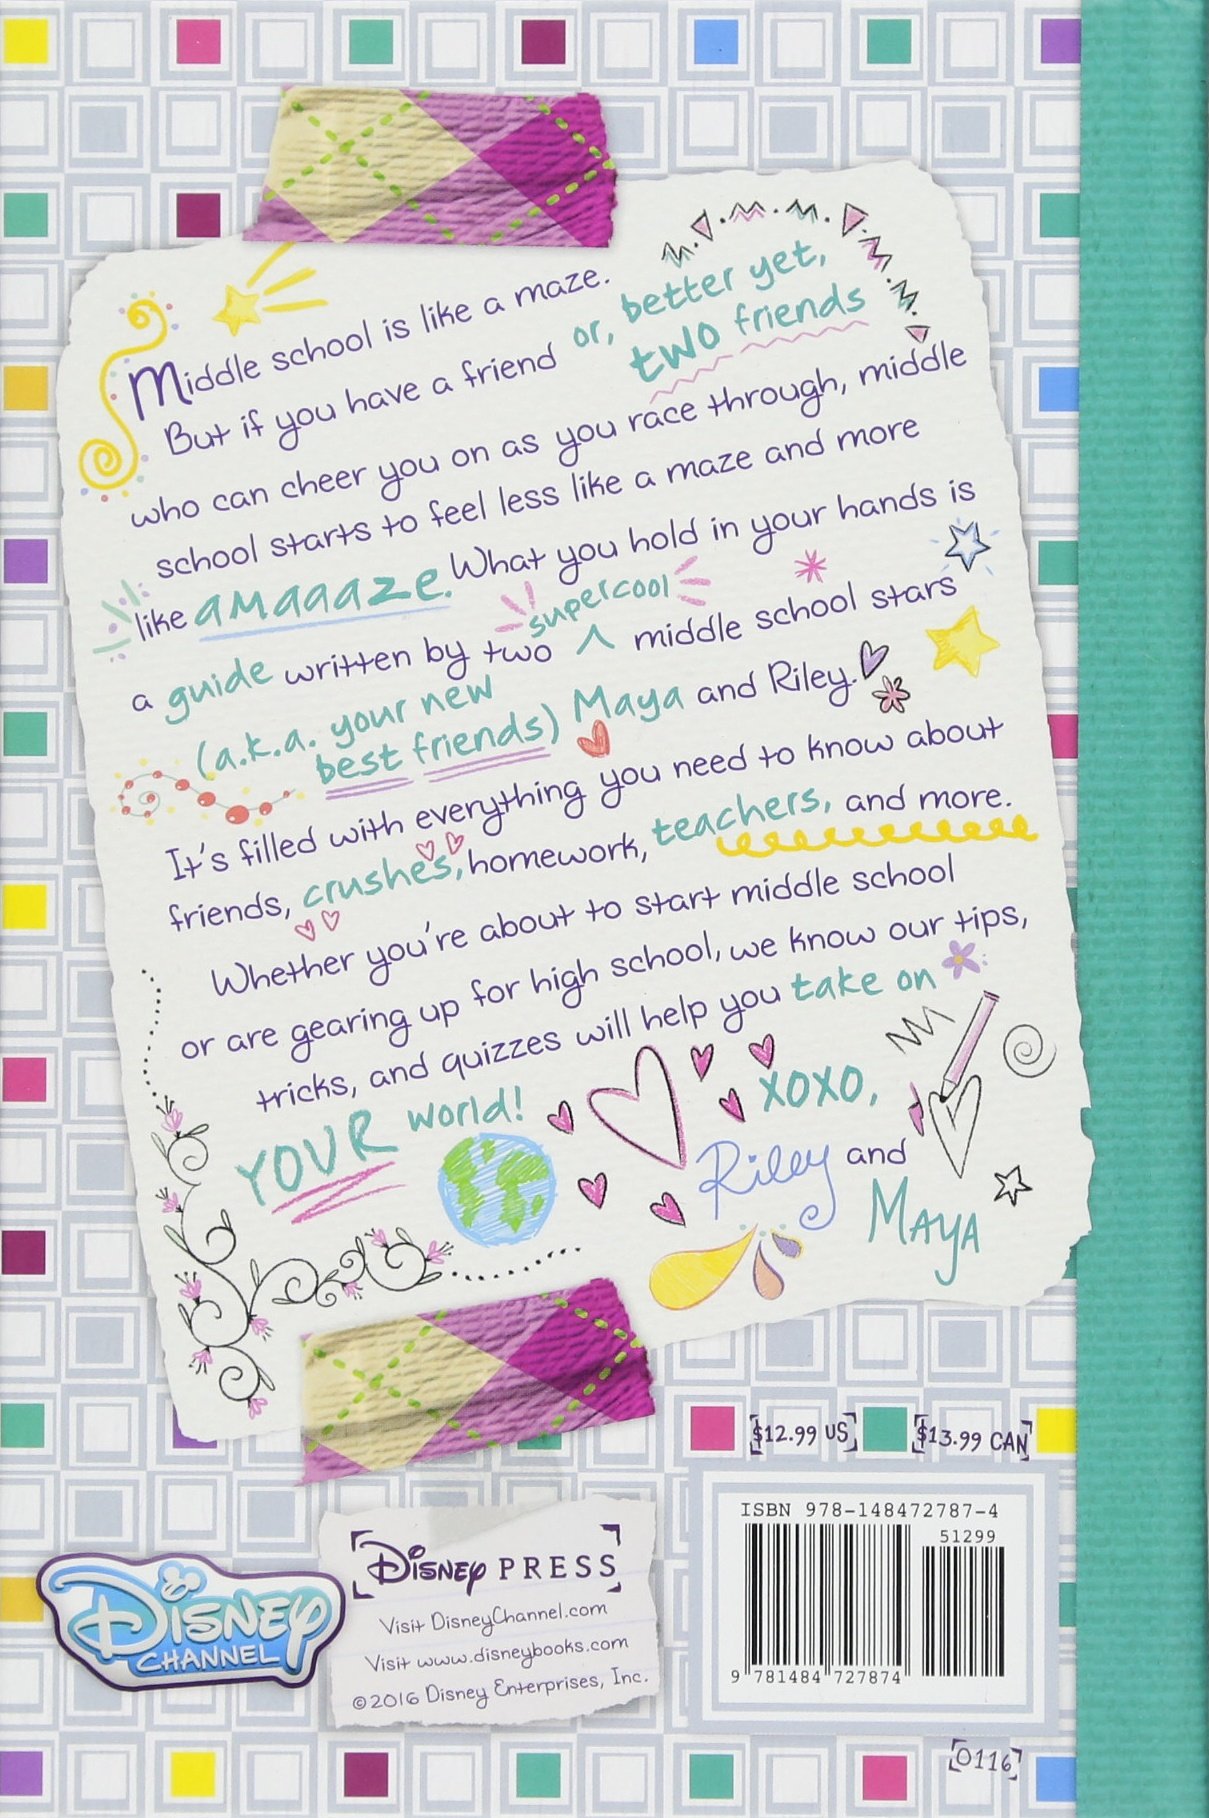 Middle school is like a maze.
But if you have a friend or, better yet,
two friends
who can cheer you on as you race through, middle
school starts to feel less like a maze and more
like amaaaze. What you hold in your hands is
supercool
a guide written by two ^ middle school stars
(a.k.a. your new
best friends) Maya and Riley.
It's filled with everything you need to know about
friends, crushes, homework, teachers, and more.
Whether you're about to start middle school
or are gearing up for high school, we know our tips,
tricks, and quizzes will help you take on
YOUR world!
XOXO,
Riley and
Maya
$12.99 US
$13.99 CAN
ISBN 978-148472787-4
51299
9 781484 727874
Disney PRESS
Visit DisneyChannel.com
Visit www.disneybooks.com
©2016 Disney Enterprises, Inc.
Disney
CHANNEL
0116